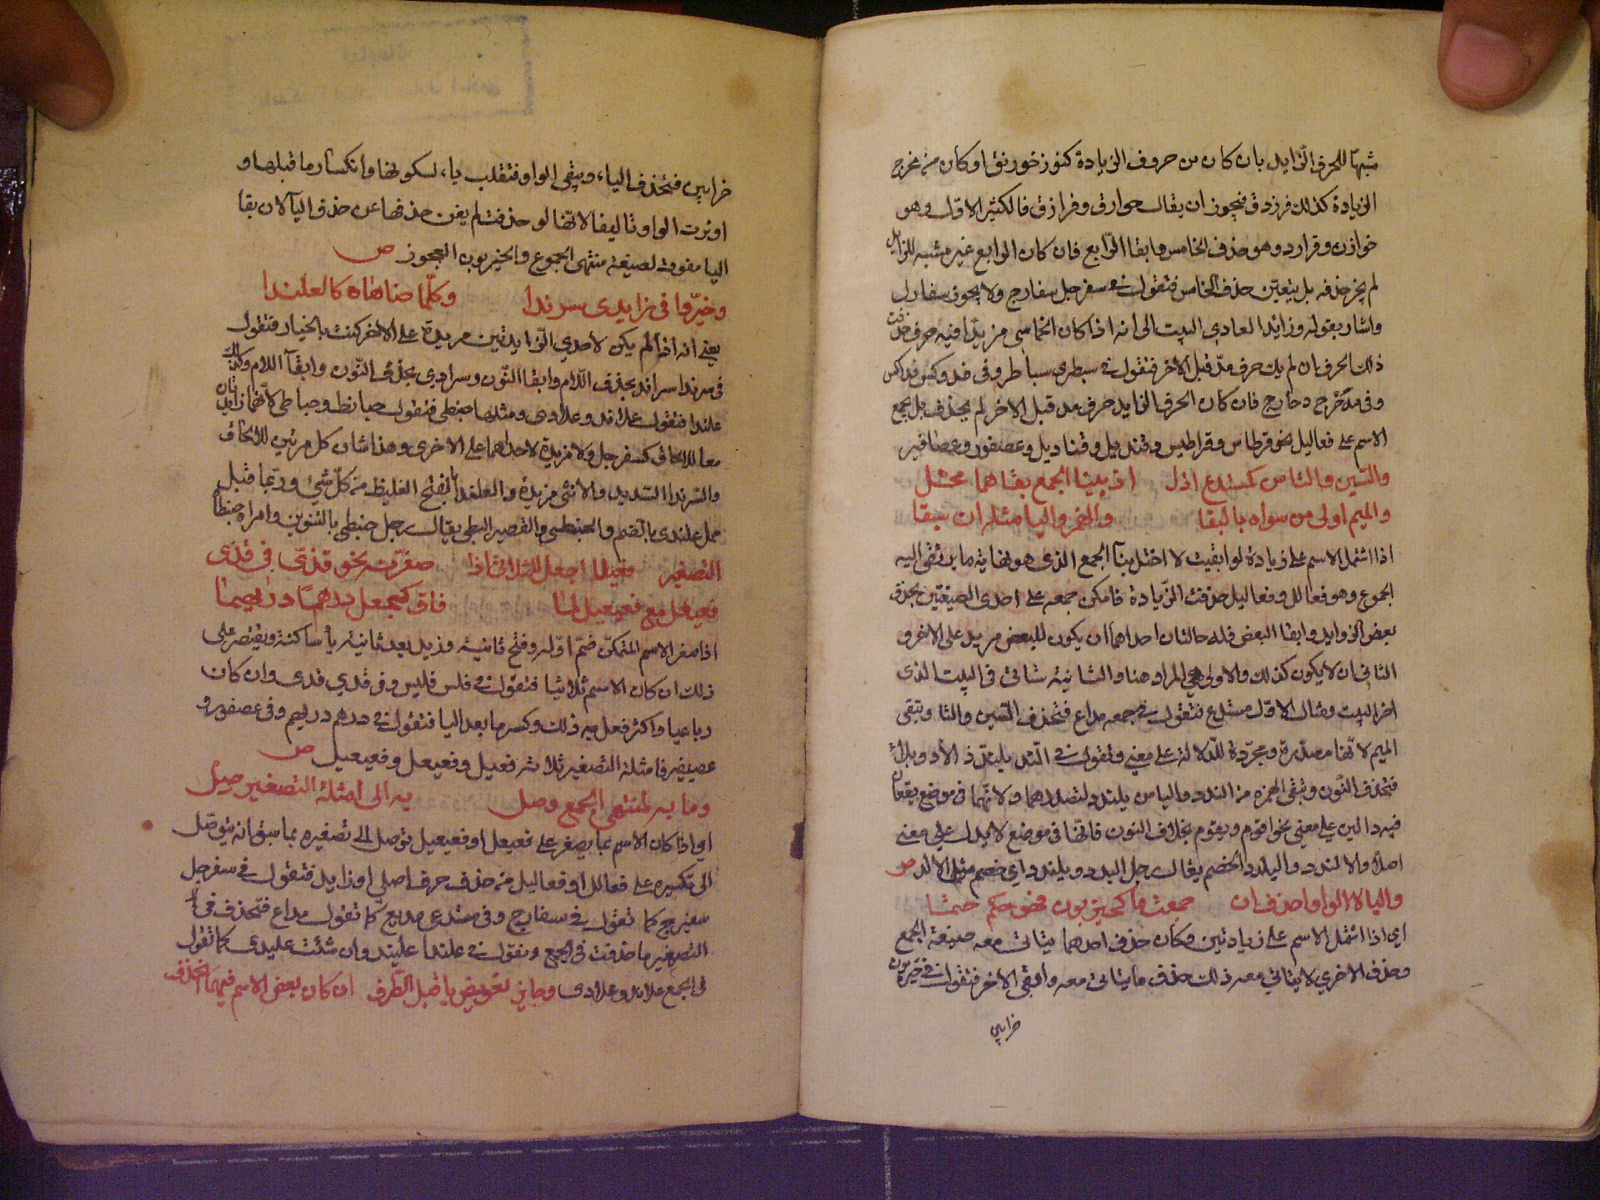 مشبها للحرف الزايد بان كان من حروف الزيادة كنون خورنق او كان من مخرج
الزيادة كدال فرزدق فيجوز ان يقال خوارق وفرازق فالكثير الاول وهو
خوارن وفرازد وهو حذف الخامس وابقا الرابع فان كان الرابع غير مشبه للزايد
لم يجز حذفه بل يتعين حذف الخامس فتقول في سفرجل سفارج ولا يجوز سفارل
واشار بقوله وزائد العادي البيت الى انه اذا كان الخماسي مزيدا فيه حرف حذفت
ذلك الحرف ان لم يك حرف مد قبل الاخر فتقول في سبطرى سباطر وفي فدوكس فداكس
وفي مدحرج دحارج فان كان الحرف الزايد حرف مد قبل الاخر لم يحذف بل يجمع
الاسم على فعاليل نحو قرطاس وقراطيس وقنديل وقناديل وعصفور وعصافير
والسين والتا من كمستدع ازل اذ ببنا الجمع بقاهما مخل
والميم اولى من سواه بالبقا والهمز واليا مثله ان سبقا
اذا اشتمل الاسم على زيادة لو ابقيت لاختل بنا الجمع الذي هو نهاية ما يرتقى اليه
الجموع وهو فعالل وفعاليل حذفت الزيادة فامكن جمعه على احدى الصيغتين بحذف
بعض الزوايد وابقا البعض فله حالتان احداهما ان يكون للبعض مزيد على الاخر و
الثاني ان لا يكون كذلك والاولى هي المراد هنا والثانية ستاتي في البيت الذي
اخر البيت ومثال الاول مستدع فتقول في جمعه مداع فتحذف السين والتا وتبقى
الميم لانها مصدرة ومجردة للدلالة على معنى وتقول في الندد يلندد الاد ويلاد
فتحذف النون وتبقى الهمزه من الندد والياء من يلندد لتصدرهما ولانهما في موضع يقعان
فيه دالين على معنى نحو اقوم ويقوم بخلاف النون فانها في موضع لا تدل على معنى
اصلا والالندد واليلندد الخصم يقال رجل الندد ويلندد اي خصم مثل الالد ص
واليا لا الواو احذف ان جمعت ما كحيزبون فهو حكم حتما
اي اذا اشتمل الاسم على زيادتين وكان حذف احدهما يتاتى معه صيغة الجمع
وحذف الاخرى لا يتاتى معه ذلك حذف ما يتاتى معه وابقى الاخر فتقول في حيزبون
حزابين
حزابين فتحذف الياء وتبقى الواو فتقلب ياء لسكونها وانكسار ما قبلها و
اوثرت الواو بالبقا لانها لو حذفت لم يغن حذفها عن حذف اليا لان بقا
اليا مفوت لصيغة منتهى الجموع والحيزبون العجوز ص
وخيروا في زايدى سرندا وكلما ضاهاه كالعلندا
يعني انه اذا لم يكن لاحدى الزايدتين مزيدة على الاخر كنت بالخيار فتقول
في سرندا سراند بحذف اللام وابقا النون وسرادى بحذف النون وابقا اللام وكذلك
علندا فتقول علاند وعلادى ومثلها حبنطى فتقول حبانط وحباطى لانهما زايدتان
معا للالحاق كسفرجل ولا مزيدة لاحداهما على الاخرى وهذا شان كل مزيدتين للالحاق
والسرندا الشديد والانثى مزيدة والعلندا بالفتح الغليظ من كل شيء وربما قيل
جمل علندى بالضم والحبنطى والقصير البطى يقال رجل حبنطى بالتنوين وامراة حبنطاة
التصغير فعيلا اجعل الثلاثي اذا صغرته نحو قذي في قذى
فعيعل مع فعيعيل لما فاق كجعل درهم دريهما
اذا صغر الاسم المتمكن ضم اوله وفتح ثانيه وزيد بعد ثانيه ياء ساكنة ويقتصر على
ذلك ان كان الاسم ثلاثيا فتقول في فلس فليس وفي قذي قذى وان كان
رباعيا واكثر فعل به ذلك وكسر ما بعد اليا فتقول في درهم دريهم وفي عصفور و
عصيفير فامثلة التصغير ثلاثة فعيل وفعيعل وفعيعيل ص
وما به لمنتهى الجمع وصل به الى امثلة التصغير صل
اي اذا كان الاسم مما يصغر على فعيعل او فعيعيل توصل الى تصغيره بما سبق انه يتوصل
الى تكسيره على فعالل او فعاليل من حذف حرف اصلي او زايد فتقول في سفرجل
سفيرج كما تقول في سفارج وفي مستدعى مديع كما تقول مداع فتحذف في
التصغير ما حذفت في الجمع وتقول في علندا عليند وان شئت عليدى كما تقول
في الجمع علاند وعلادى وجايز تعويض يا قبل الطرف ان كان بعض الاسم فيهما انحذف